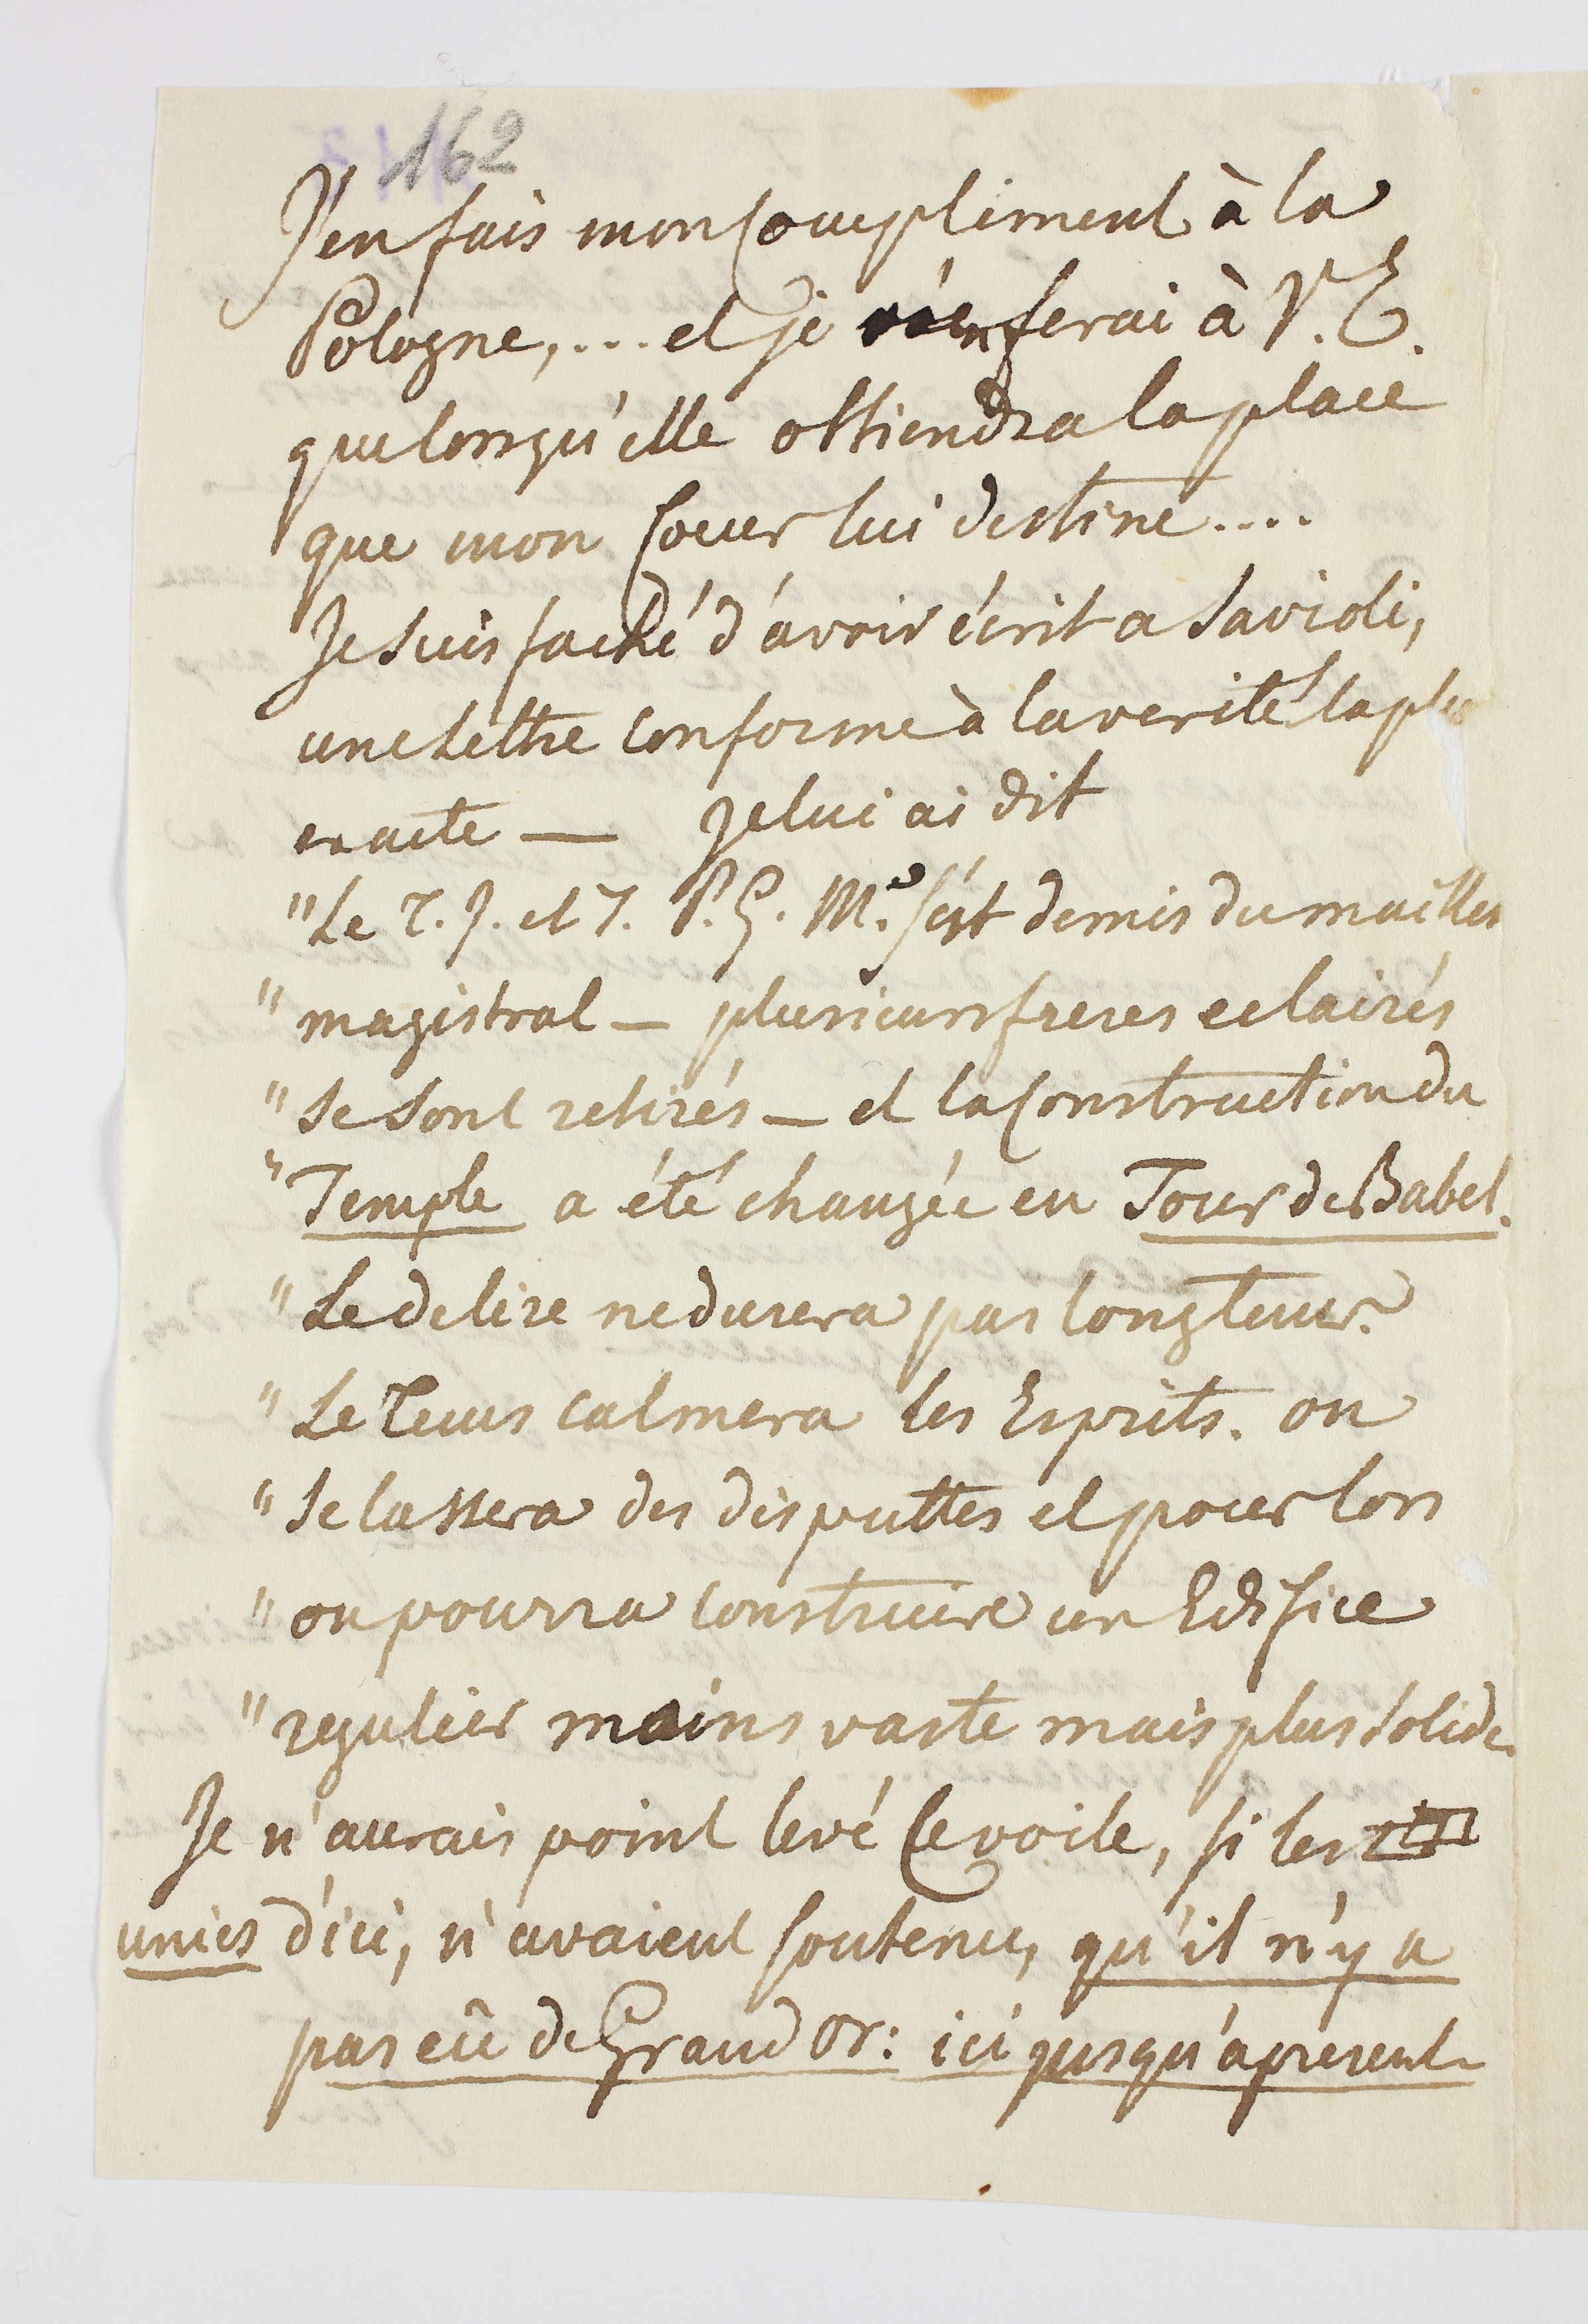 162
J'en fais mon Compliment à la
Pologne,.... et je n'en ferai à V. E.
que lorsqu'elle obtiendra la place
que mon Coeur lui destine....
Je suis faché d'avoir écrit a Savioli,
une Lettre conforme à la verité la plus
exacte — Je lui ai dit
"Le T. J. et T. P. G. Me. s'est demis du maillet
" magistral — plusieurs freres eclairés
" se sont retirés — et la Construction du
" Temple a été changée en Tour de Babel.
" Le delire ne durera pas longtems.
" Le Tems calmera les Esprits. on
" se lassera des disputtes et pour lors
" on pourra construire un Edifice
" regulier moins vaste mais plus solide.
Je n'aurais point levé Ce voile, si les
unies d'ici, n'avaient soutenu, qu'il n'y a
pas eû de Grand Or: ici jusqu'apresent